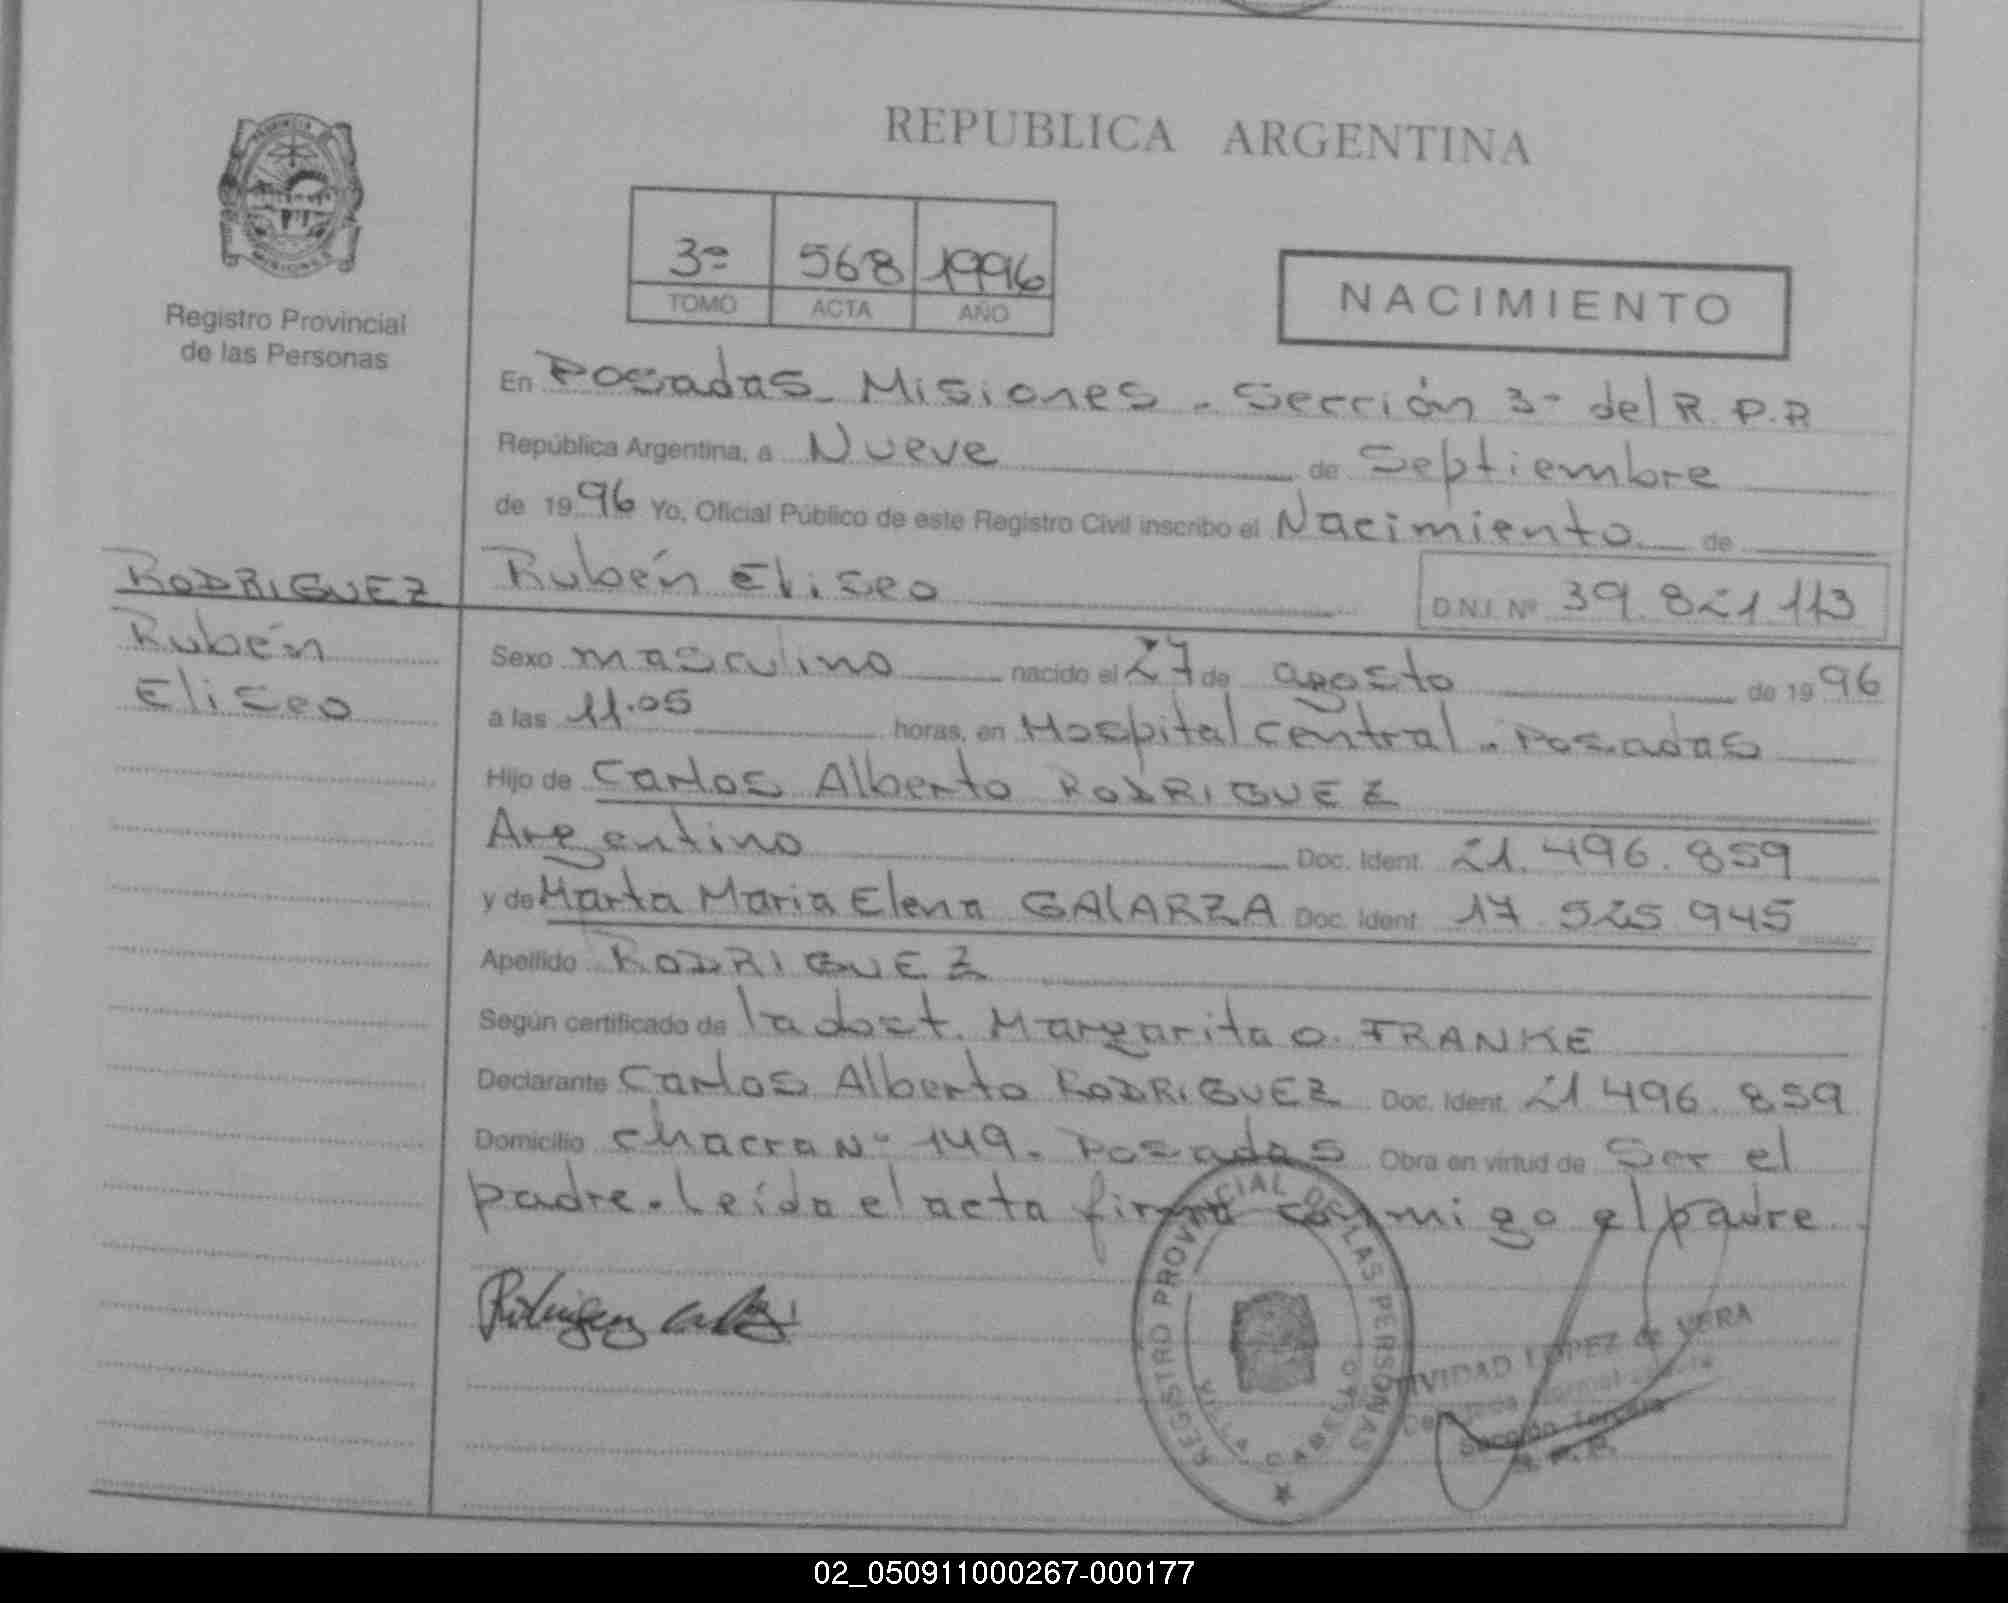 REPUBLICA ARGENTINA
3º 568 1996
TOMO ACTA AÑO
NACIMIENTO
MISIONES
Registro Provincial
de las Personas
En Posadas - Misiones - Sección 3ª del R. P. P
República Argentina, a Nueve de Septiembre
de 1996 Yo, Oficial Público de este Registro Civil inscribo el Nacimiento de
RODRIGUEZ
Rubén
Eliseo
Rubén Eliseo D.N.I. Nº 39.821.113
Sexo masculino nacido el 27 de agosto de 1996
a las 11.05 horas, en Hospital Central - Posadas
Hijo de Carlos Alberto RODRIGUEZ
Argentino Doc. Ident. 21.496.859
y de Marta Maria Elena GALARZA Doc. Ident. 17 525 945
Apellido RODRIGUEZ
Según certificado de la doct. Margarita O. FRANKE
Declarante Carlos Alberto RODRIGUEZ Doc. Ident. 21 496.859
Domicilio Chacra Nº 149. Posadas Obra en virtud de Ser el
padre. Leída el acta firma conmigo el padre
REGISTRO PROVINCIAL DE LAS PERSONAS
LOPEZ de VERA
Sección Tercera
02_050911000267-000177